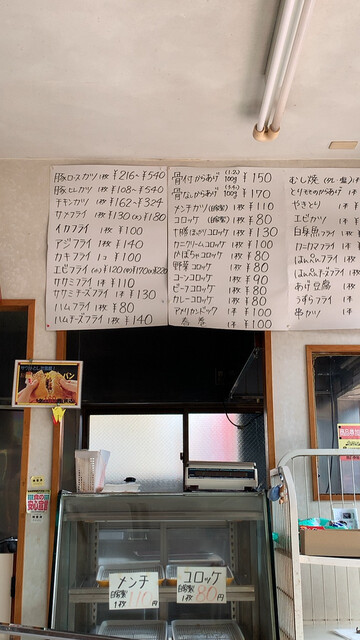 豚ロースカツ 1枚 ¥216~¥540
豚ヒレカツ 1枚 ¥108~¥540
チキンカツ 1枚 ¥162~¥324
サメフライ 1枚 ¥130 (大)¥180
イカフライ 1枚 ¥100
アジフライ 1枚 ¥140
カキフライ 1コ ¥100
エビフライ (小)¥120 (中)¥170 (大)¥220
ササミフライ 1本 ¥110
ササミチーズフライ 1本 ¥130
ハムフライ 1枚 ¥80
ハムチーズフライ 1枚 ¥140
骨付からあげ 100g ¥150
骨なしからあげ 100g ¥170
メンチカツ(自家製) 1枚 ¥110
コロッケ (自家製) 1枚 ¥80
十勝ほっかりコロッケ 1枚 ¥130
カニクリームコロッケ 1枚 ¥100
かぼちゃコロッケ 1枚 ¥80
野菜コロッケ 1枚 ¥80
コーンコロッケ 1枚 ¥90
ビーフコロッケ 1枚 ¥80
カレーコロッケ 1枚 ¥80
アメリカンドック 1本 ¥100
春巻 1本 ¥100
むし焼
とりもものからあげ 1本
やきとり
エビカツ
白身魚フライ
カニカマフライ
はんぺんフライ
はんぺんチーズフライ
あげ豆腐
うずらフライ
串カツ
パン
メンチ
自家製
1枚 110円
コロッケ
自家製
1枚 80円